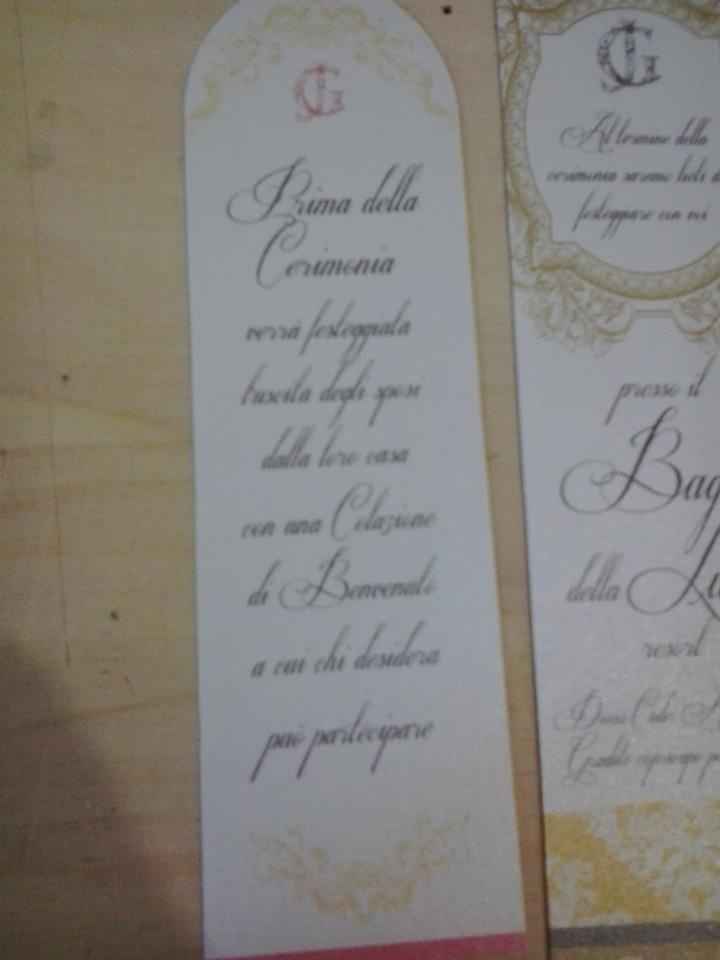 JG
Prima della
Cerimonia
verrà festeggiata
l'uscita degli sposi
dalla loro casa
con una Colazione
di Benvenuto
a cui chi desidera
può partecipare
JG
Al termine della
cerimonia saremo lieti di
festeggiare con voi
presso il
della
resort